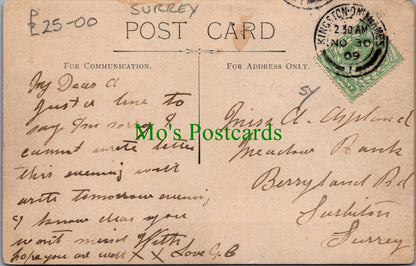 P
£25-00
SURREY
POST CARD
FOR COMMUNICATION.
FOR ADDRESS ONLY.
KINGSTON-ON-THAMES
2.30 AM
NO 30
09
SY
My Dear A
Just a line to
say I'm sorry I
cannot write letter
this evening will
write tomorrow evening
I know dear you
wont mind With
hope you are well X X Love G.B
Miss A.
Meadow Bank
Berryland Rd
Surbiton
Surrey
Mo's Postcards